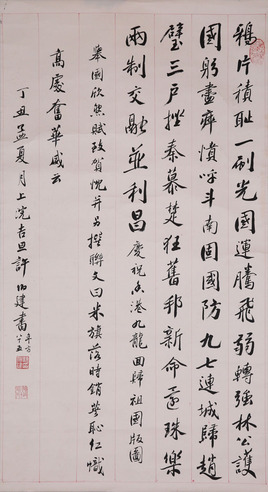 鴉片積恥一刷光國運騰飛弱轉強林公護
國躬盡瘁憤呼斗南固國防九七連城歸趙
璧三戶摧秦慕楚狂舊邦新命還珠樂
兩制交融並利昌慶祝香港九龍回歸祖國版圖
舉國欣然賦致賀忱并另撰聯文曰米旗落時銷營恥仁幟
高處奮華威云
丁丑孟夏月上浣吉旦許 建書 年方八十五